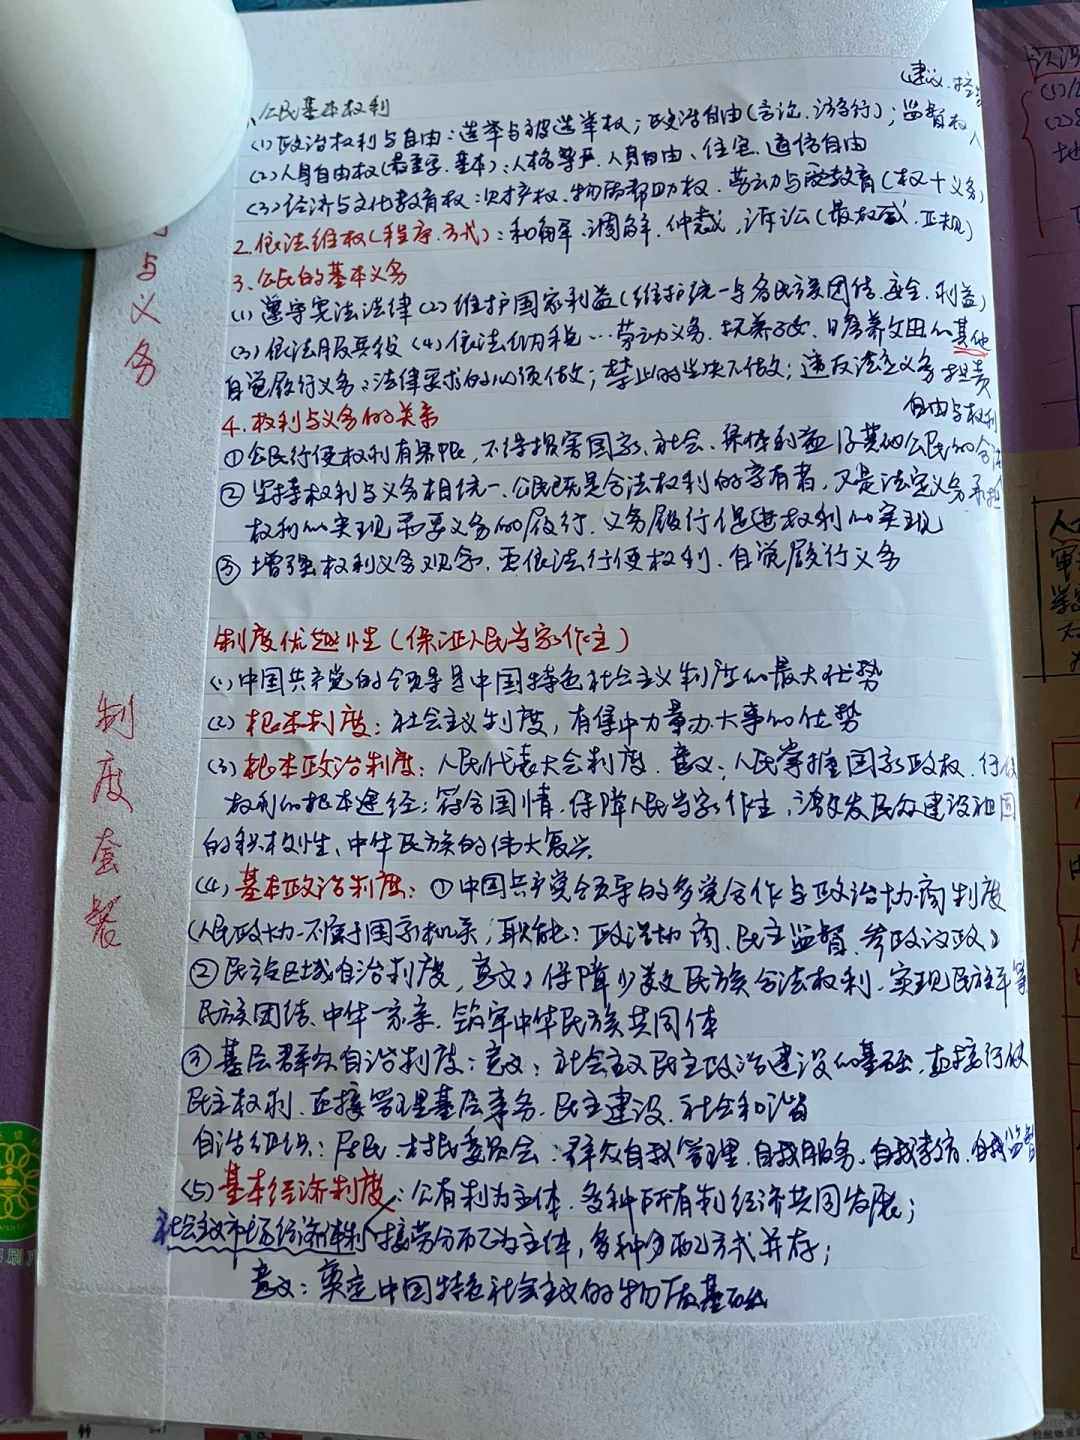 (建议、控
1、公民基本权利
(1)政治权利与自由:选举与被选举权;政治自由(言论、游行);监督权
(2)人身自由权(最重要、基本):人格尊严、人身自由、住宅、通信自由
(3)经济与文化教育权:财产权、物质帮助权、劳动与受教育(权+义务)
2.依法维权(程序、方式):和解、调解、仲裁、诉讼(最权威、正规)
3.公民的基本义务
(1)遵守宪法法律(2)维护国家利益(维护统一与各民族团结、安全、利益)
(3)依法服兵役(4)依法纳税…劳动义务、抚养子女、赡养父母的其他
自觉履行义务:法律要求的必须做;禁止的坚决不做;违反法定义务担责
自由与权利
4.权利与义务的关系
①公民行使权利有界限,不得损害国家、社会、集体利益及其他公民的合法
②坚持权利与义务相统一、公民既是合法权利的享有者,又是法定义务承担
权利的实现需要义务的履行,义务履行促进权利的实现
③增强权利义务观念,要依法行使权利、自觉履行义务
与义务
制度优越性(保证人民当家作主)
(1)中国共产党的领导是中国特色社会主义制度的最大优势
(2)根本制度:社会主义制度,有集中力量办大事的优势
(3)根本政治制度:人民代表大会制度、意义:人民掌握国家政权、行使
权利的根本途径;符合国情、保障人民当家作主,激发民众建设祖国
的积极性、中华民族的伟大复兴
(4)基本政治制度:①中国共产党领导的多党合作与政治协商制度
(人民政协-不属于国家机关,职能:政治协商、民主监督、参政议政)
②民族区域自治制度,意义:保障少数民族合法权利、实现民族平等
民族团结、中华一家亲、铸牢中华民族共同体
③基层群众自治制度:意义:社会主义民主政治建设的基础,直接行使
民主权利、直接管理基层事务、民主建设、社会和谐
自治组织:居民、村民委员会:群众自我管理、自我服务、自我教育、自我监督
(5)基本经济制度:公有制为主体、多种所有制经济共同发展;
社会主义市场经济体制 按劳分配为主体,多种分配方式并存;
意义:奠定中国特色社会主义的物质基础
制度套餐